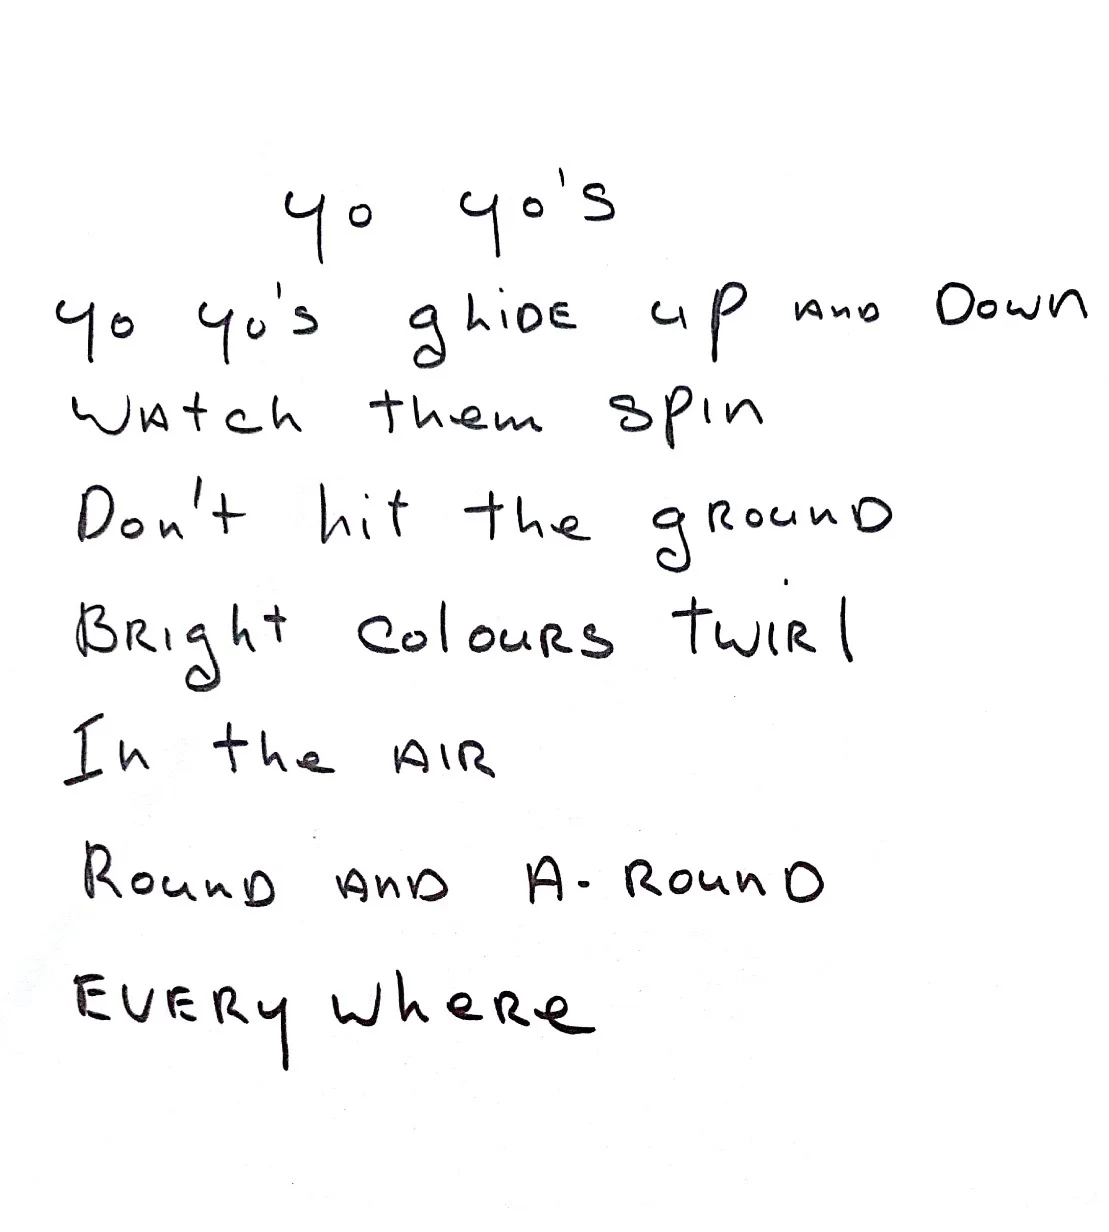 yo yo's
yo yo's ghiDE up AnD Down
WAtch them spin
Don't hit the gRounD
BRight ColouRS TWIRl
In the AIR
RounD AnD A-RounD
EVERy WheRe